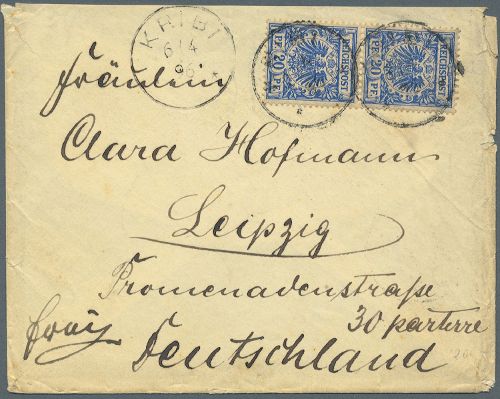 KRIBI
6/4
96
PF. 20 PF. REICHSPOST
PF. 20 PF. REICHSPOST
Fräulein
Clara Hofmann
Leipzig
Promenadenstraße
30 parterre
Deutschland